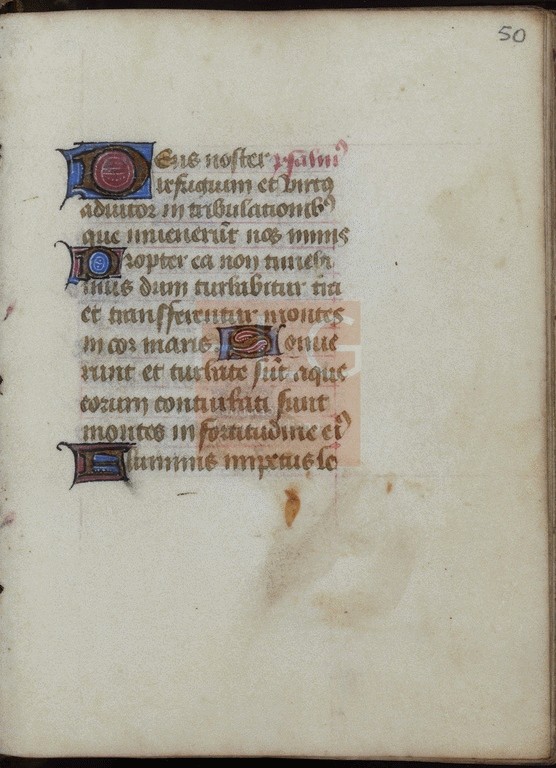 50
Deus noster psalmꝰ
refugium et virtꝰ
adiutor in tribulationibꝰ
que inuenerūt nos nimis
Propter ea non timebi
mus dum turbabitur tr̄a
et transferentur montes
in cor maris Sonue
runt et turbate sūt aque
eorum conturbati sunt
montes in fortitudine eiꝰ
Fluminis impetus le